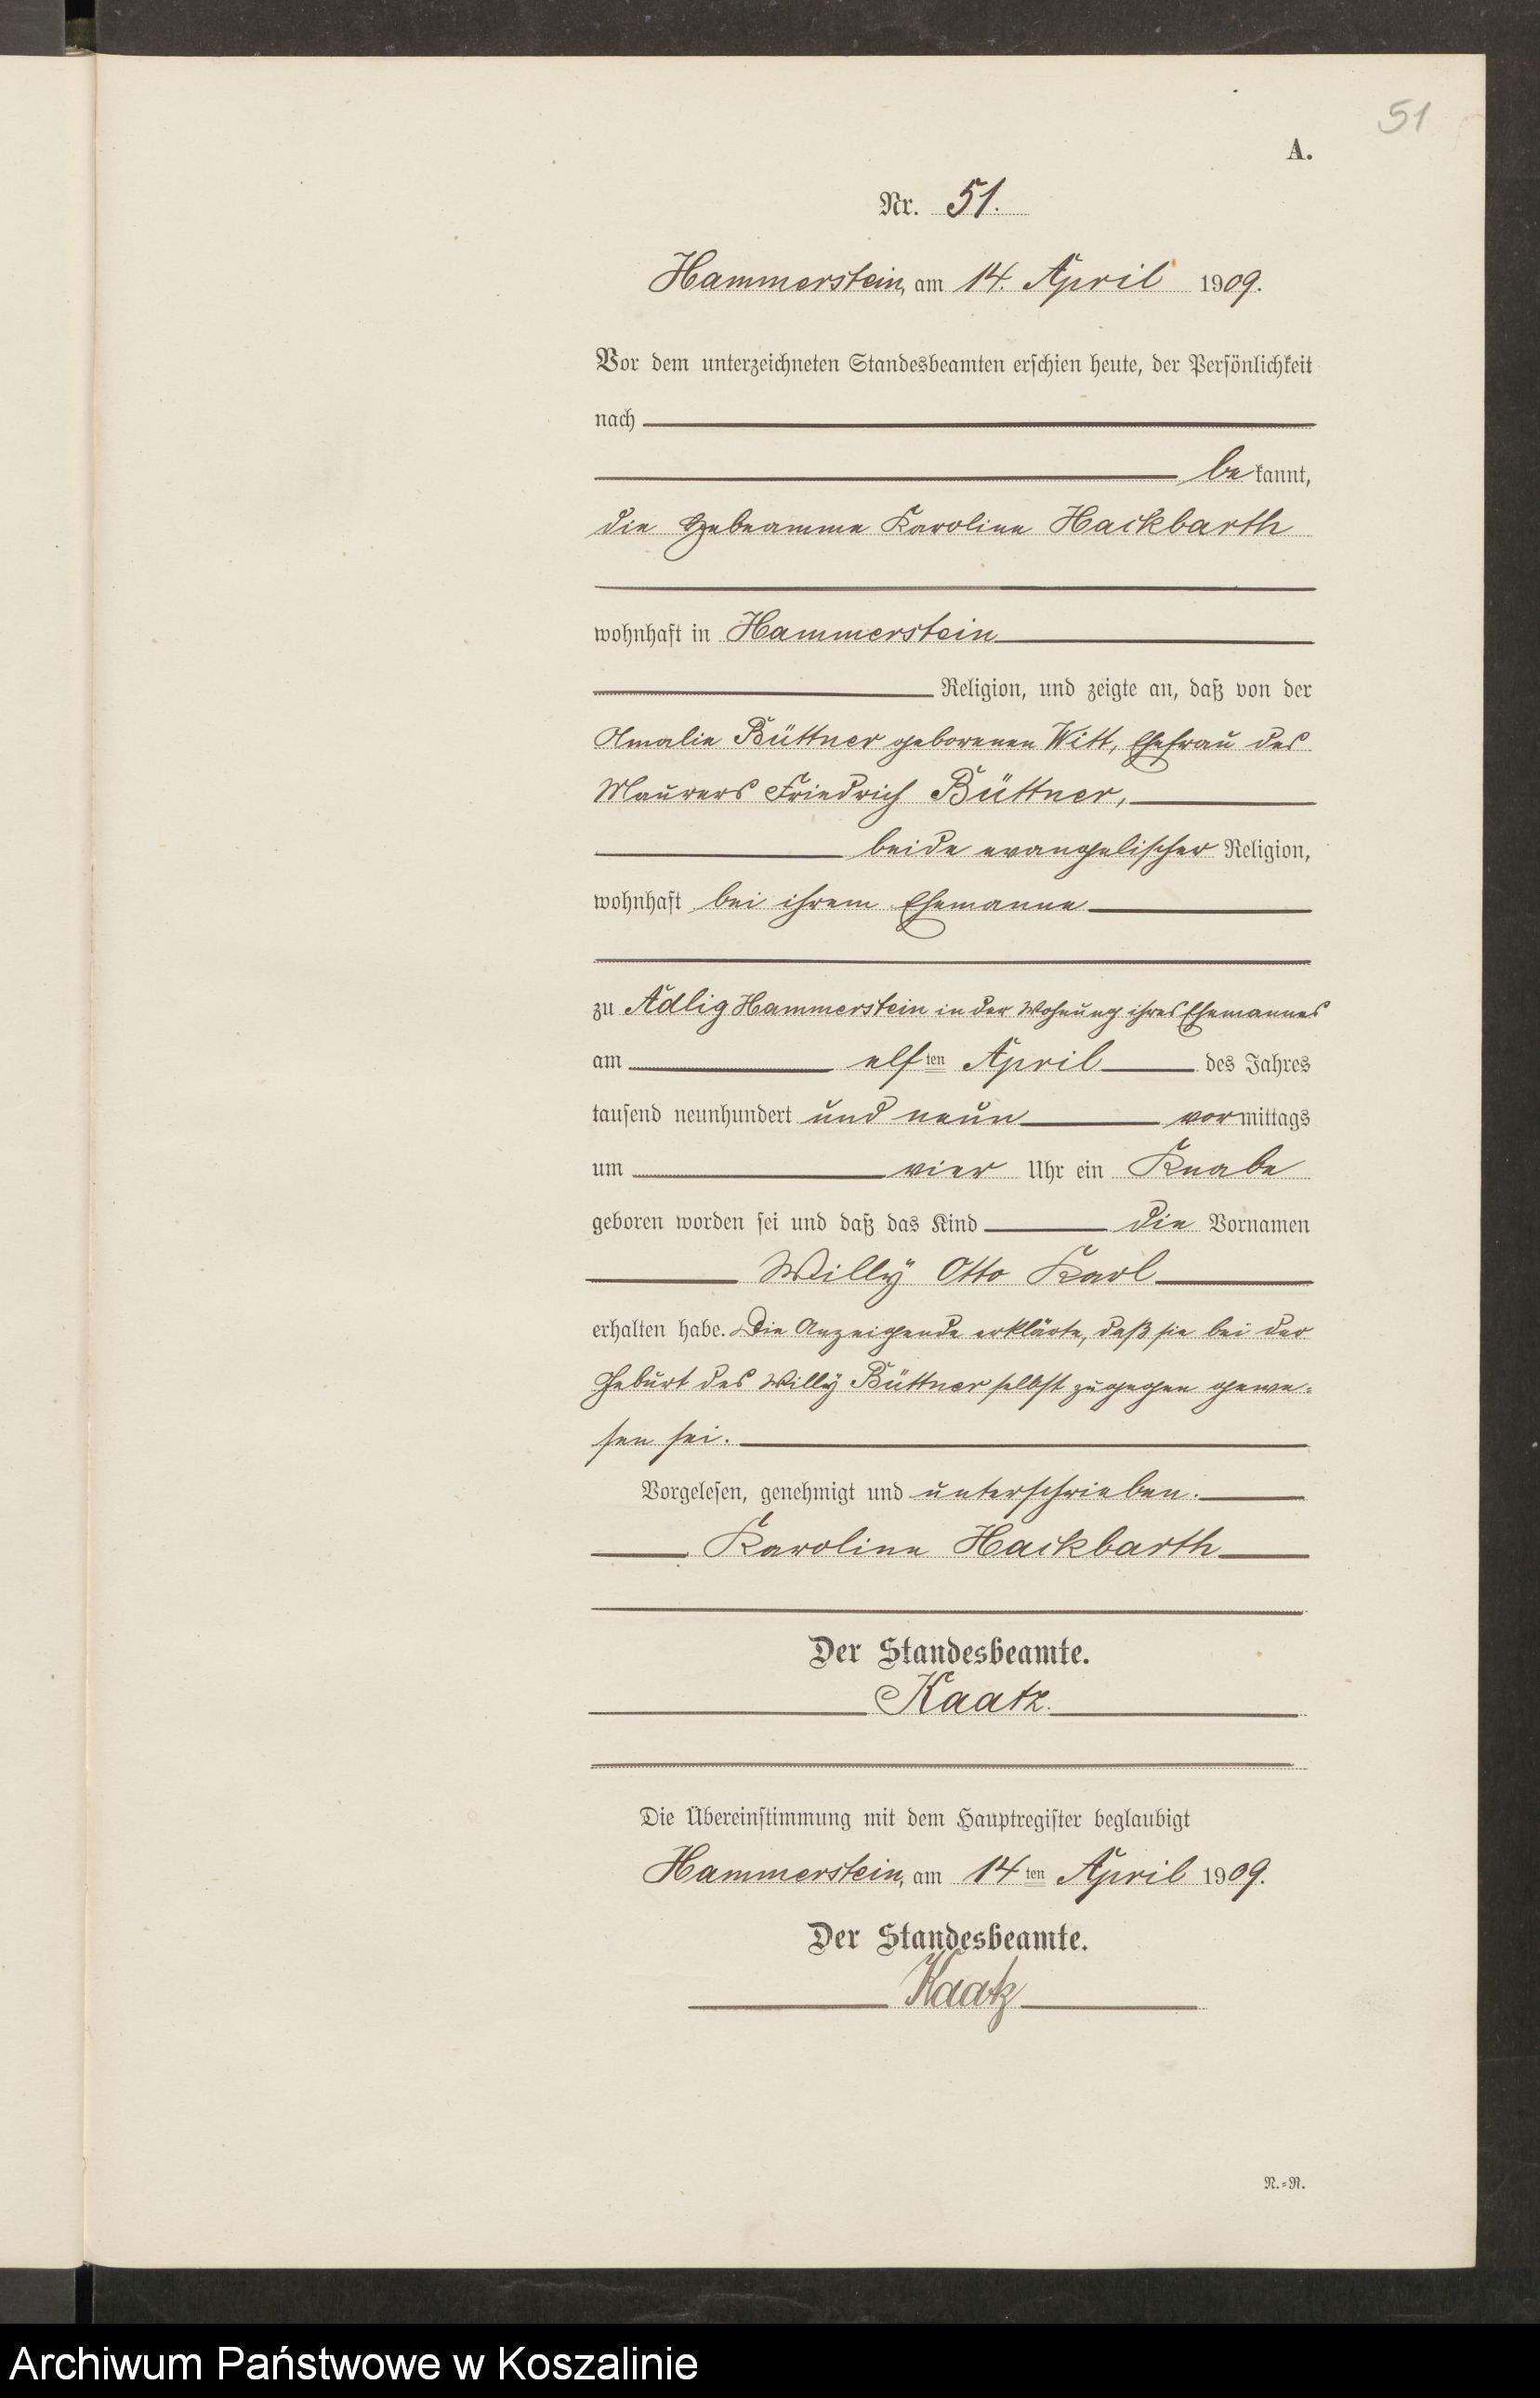 51
A.
Nr. 51.
Hammerstein, am 14. April 1909.
Vor dem unterzeichneten Standesbeamten erschien heute, der Persönlichkeit
nach
be kannt,
die Hebeamme Karoline Hackbarth
wohnhaft in Hammerstein
Religion, und zeigte an, daß von der
Amalie Büttner geborenen Witt, Ehefrau des
Maurers Friedrich Büttner,
beide evangelischer Religion,
wohnhaft bei ihrem Ehemanne
zu Adlig Hammerstein in der Wohnung ihres Ehemannes
am elf ten April des Jahres
tausend neunhundert und neun vormittags
um vier Uhr ein Knabe
geboren worden sei und daß das Kind die Vornamen
Willy Otto Karl
erhalten habe. Die Anzeigende erklärte, daß sie bei der
Geburt des Willy Büttner selbst zugegen gewe-
sen sei.
Vorgelesen, genehmigt und unterschrieben.
Karoline Hackbarth
Der Standesbeamte.
Kaatz.
Die Übereinstimmung mit dem Hauptregister beglaubigt
Hammerstein, am 14 ten April 1909.
Der Standesbeamte.
Kaatz
N.-R.
Archiwum Państwowe w Koszalinie